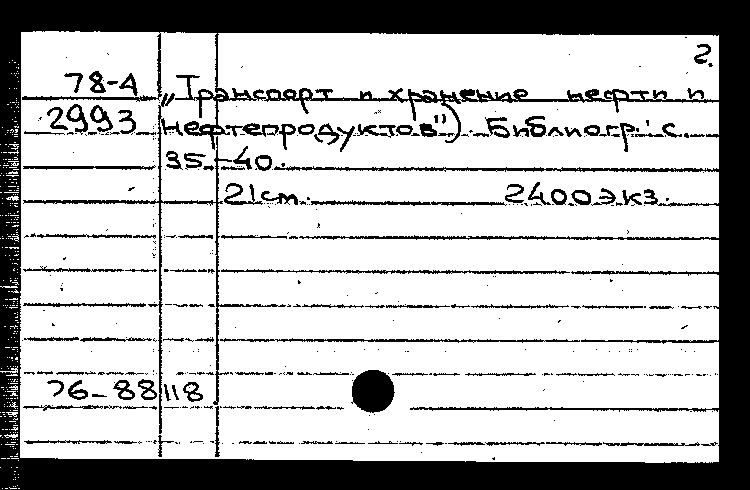 2.
78-4 „Транспорт и хранение нефти и
2993 нефтепродуктов"). Библиогр.: с.
35-40.
21см. 2400экз.
76-88118